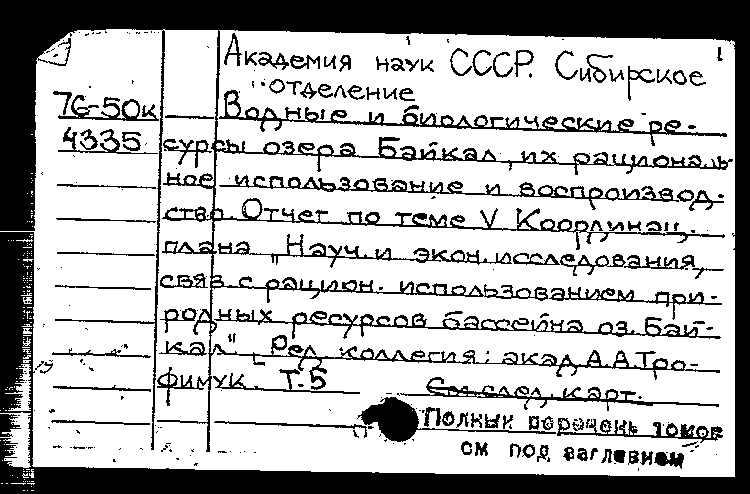 1
Академия наук СССР. Сибирское
отделение
76-50к Водные и биологические ре-
4335 сурсы озера Байкал, их рациональ-
ное использование и воспроизвод-
ство. Отчет по теме V Координац.
плана „Науч. и экон. исследования,
связ. с рацион. использованием при-
родных ресурсов бассейна оз. Бай-
кал". [Ред. коллегия: акад. А.А. Тро-
фимук. Т.5 См. след. карт.
Полный перечень томов
см под заглавием